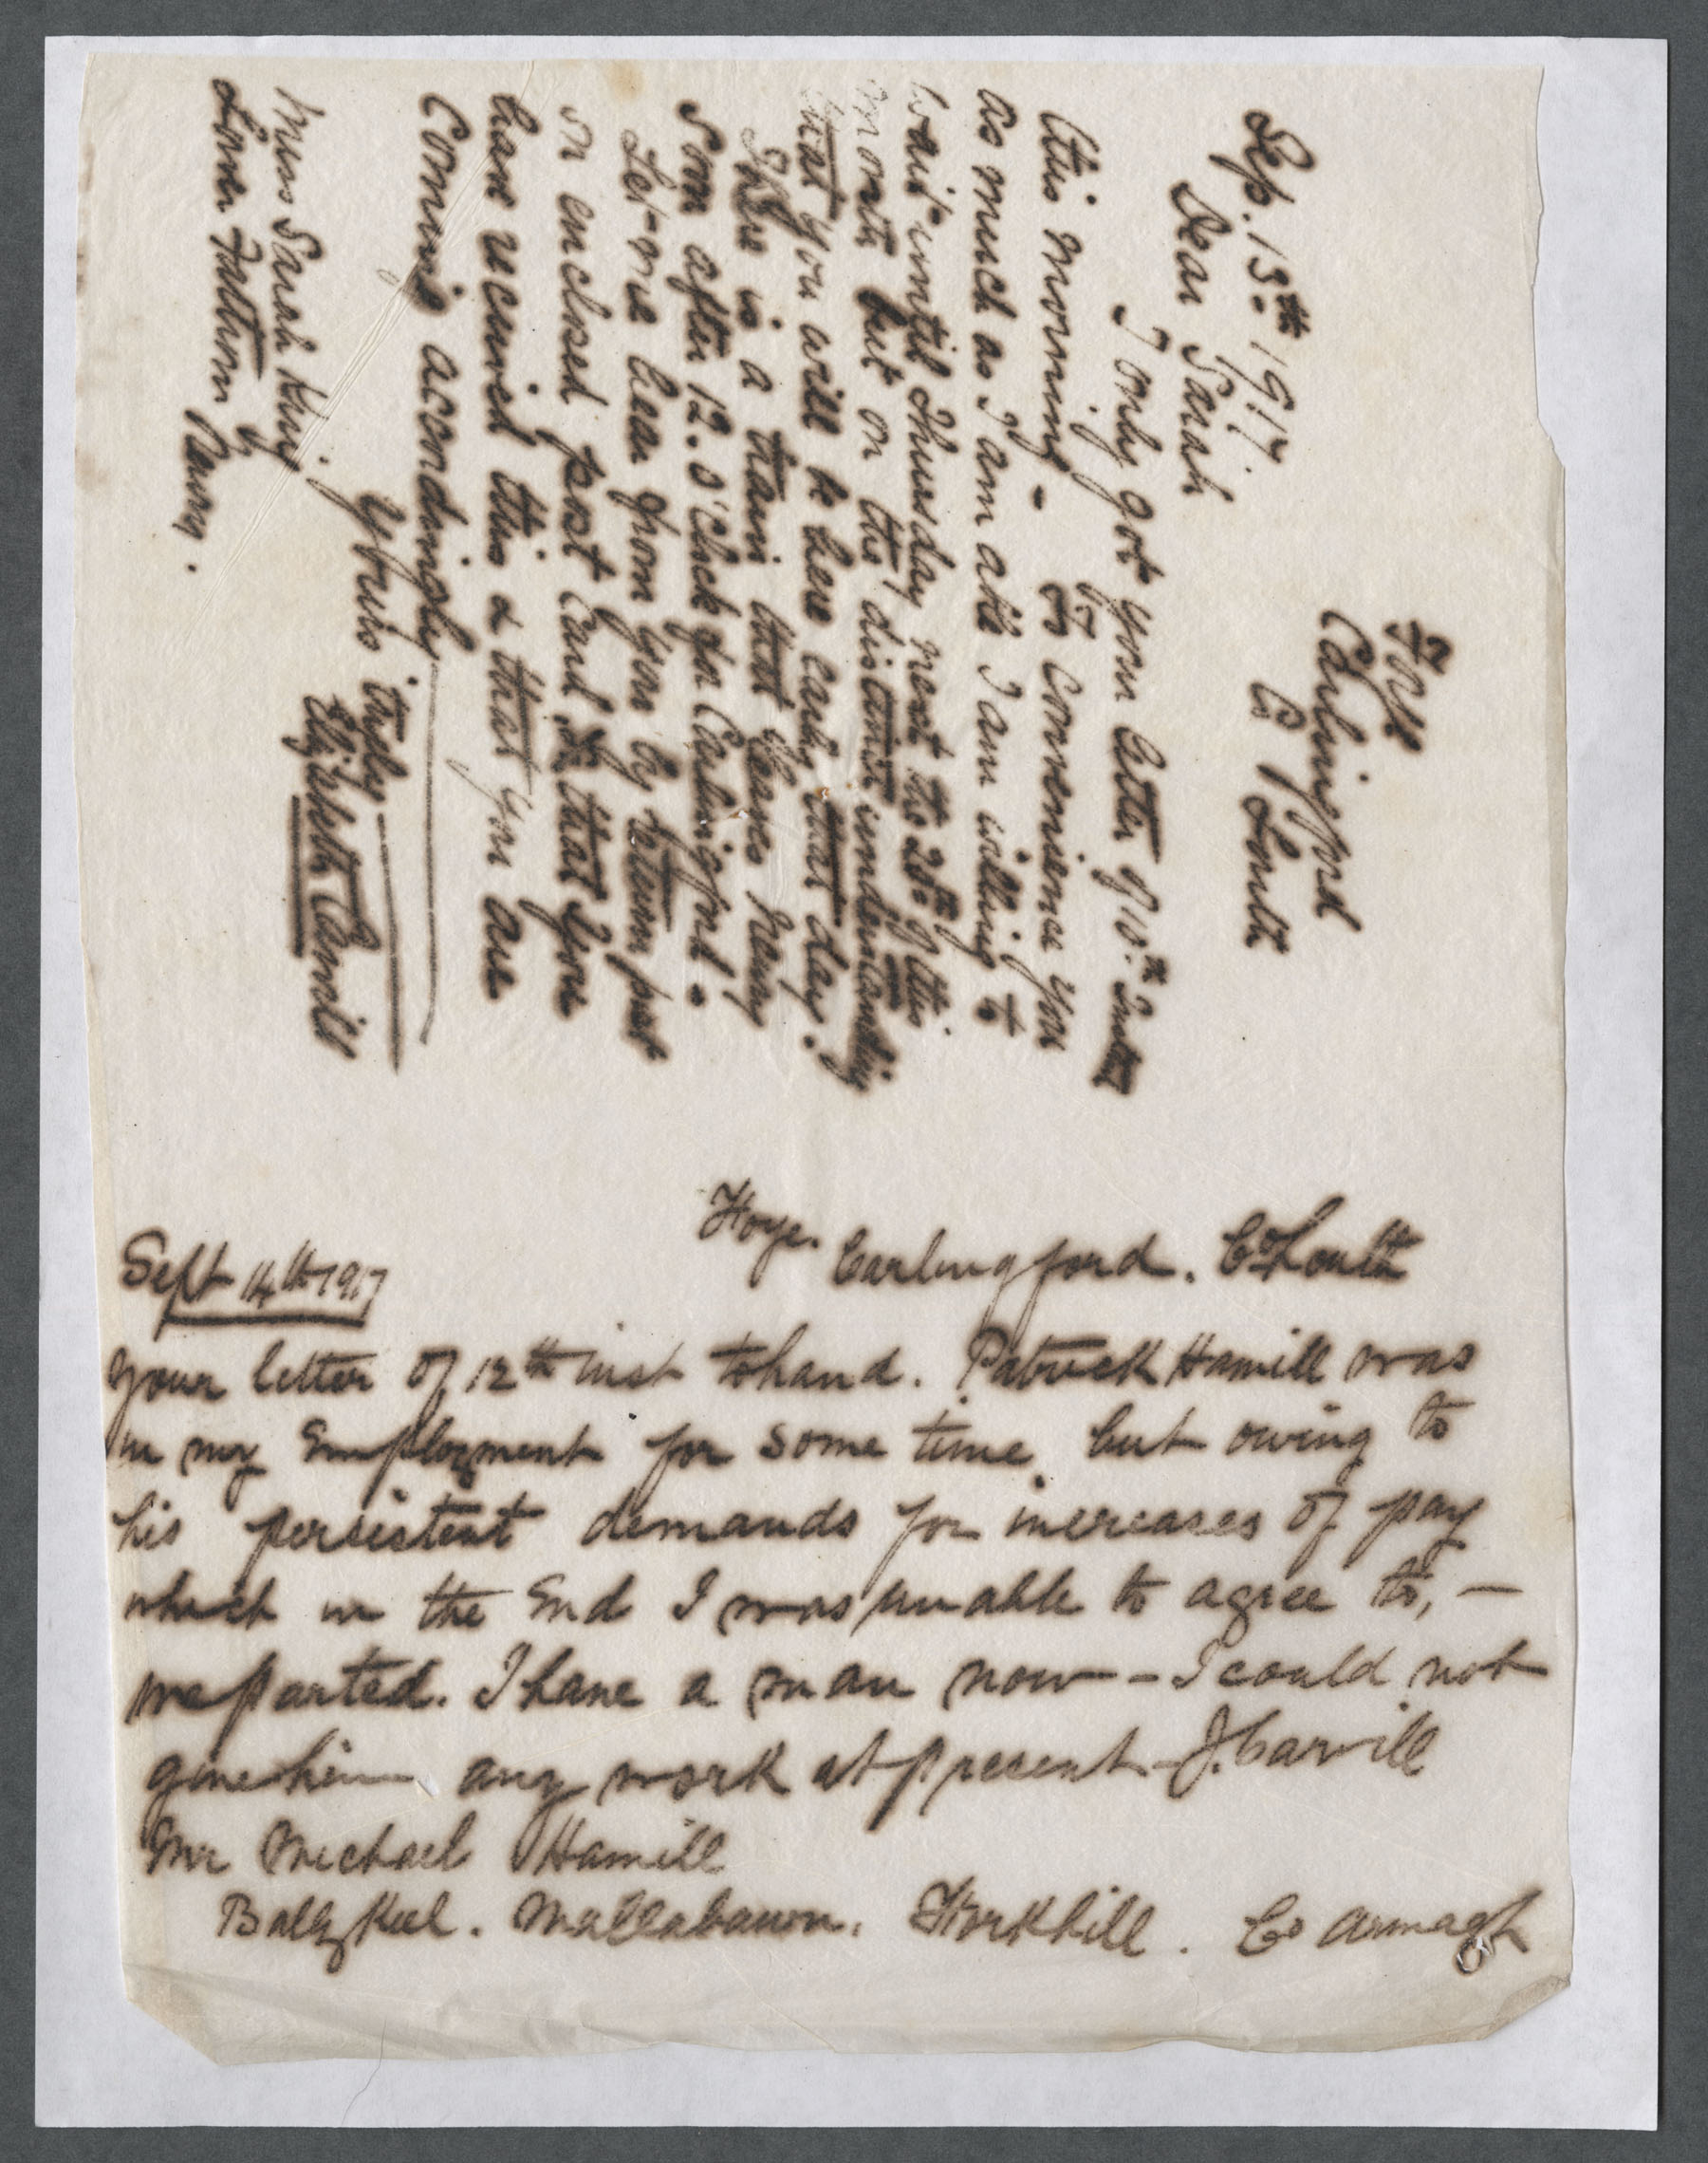 Foye
Carlingford
Co Louth
Sep. 13th 1917
Dear Sarah
I only got your letter of 10th Instant
this morning - To Convenience you
as much as I am able I am willing to
wait until Thursday next the 20th of this
month but on the distinct understanding
that you will be here early that day.
There is a train that leaves Newry
soon after 12. o'clock for Carlingford.
Let me hear from you by return post
on enclosed post Card that you
have received this & that you are
Coming accordingly
Yours truly
Elizabeth Carvill
Miss Sarah King
Lower Fathom Newry.
Foye. Carlingford. Co Louth
Sept 14th 1917
Your letter of 12th inst to hand. Patrick Hamill was
in my Employment for some time but owing to
his persistent demands for increases of pay
which in the End I was unable to agree to, -
we parted. I have a man now - I could not
give him any work at present - J. Carvill
Mr Michael Hamill
Ballykeel. Mullabawn. Forkhill. Co Armagh